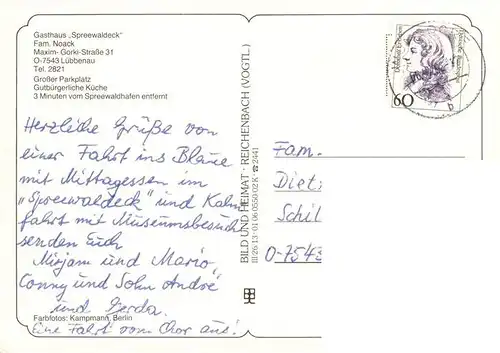 Gasthaus „Spreewaldeck"
Fam. Noack
Maxim- Gorki-Straße 31
O-7543 Lübbenau
Tel. 2821
Großer Parkplatz
Gutbürgerliche Küche
3 Minuten vom Spreewaldhafen entfernt
Herzliche Grüße von
einer Fahrt ins Blaue
mit Mittagessen im
„Spreewaldeck" und Kahn
fahrt mit Museumsbesuch
senden Euch
Mirjam und Mario,
Conny und Sohn André
und Gerda.
Eine Fahrt vom Chor aus!
Farbfotos: Kampmann, Berlin
BILD UND HEIMAT · REICHENBACH (VOGTL.)
III/26/13-01 06 0550/02 K · ☎ 2441
60
Fam.
Diet
Schil
O-7543